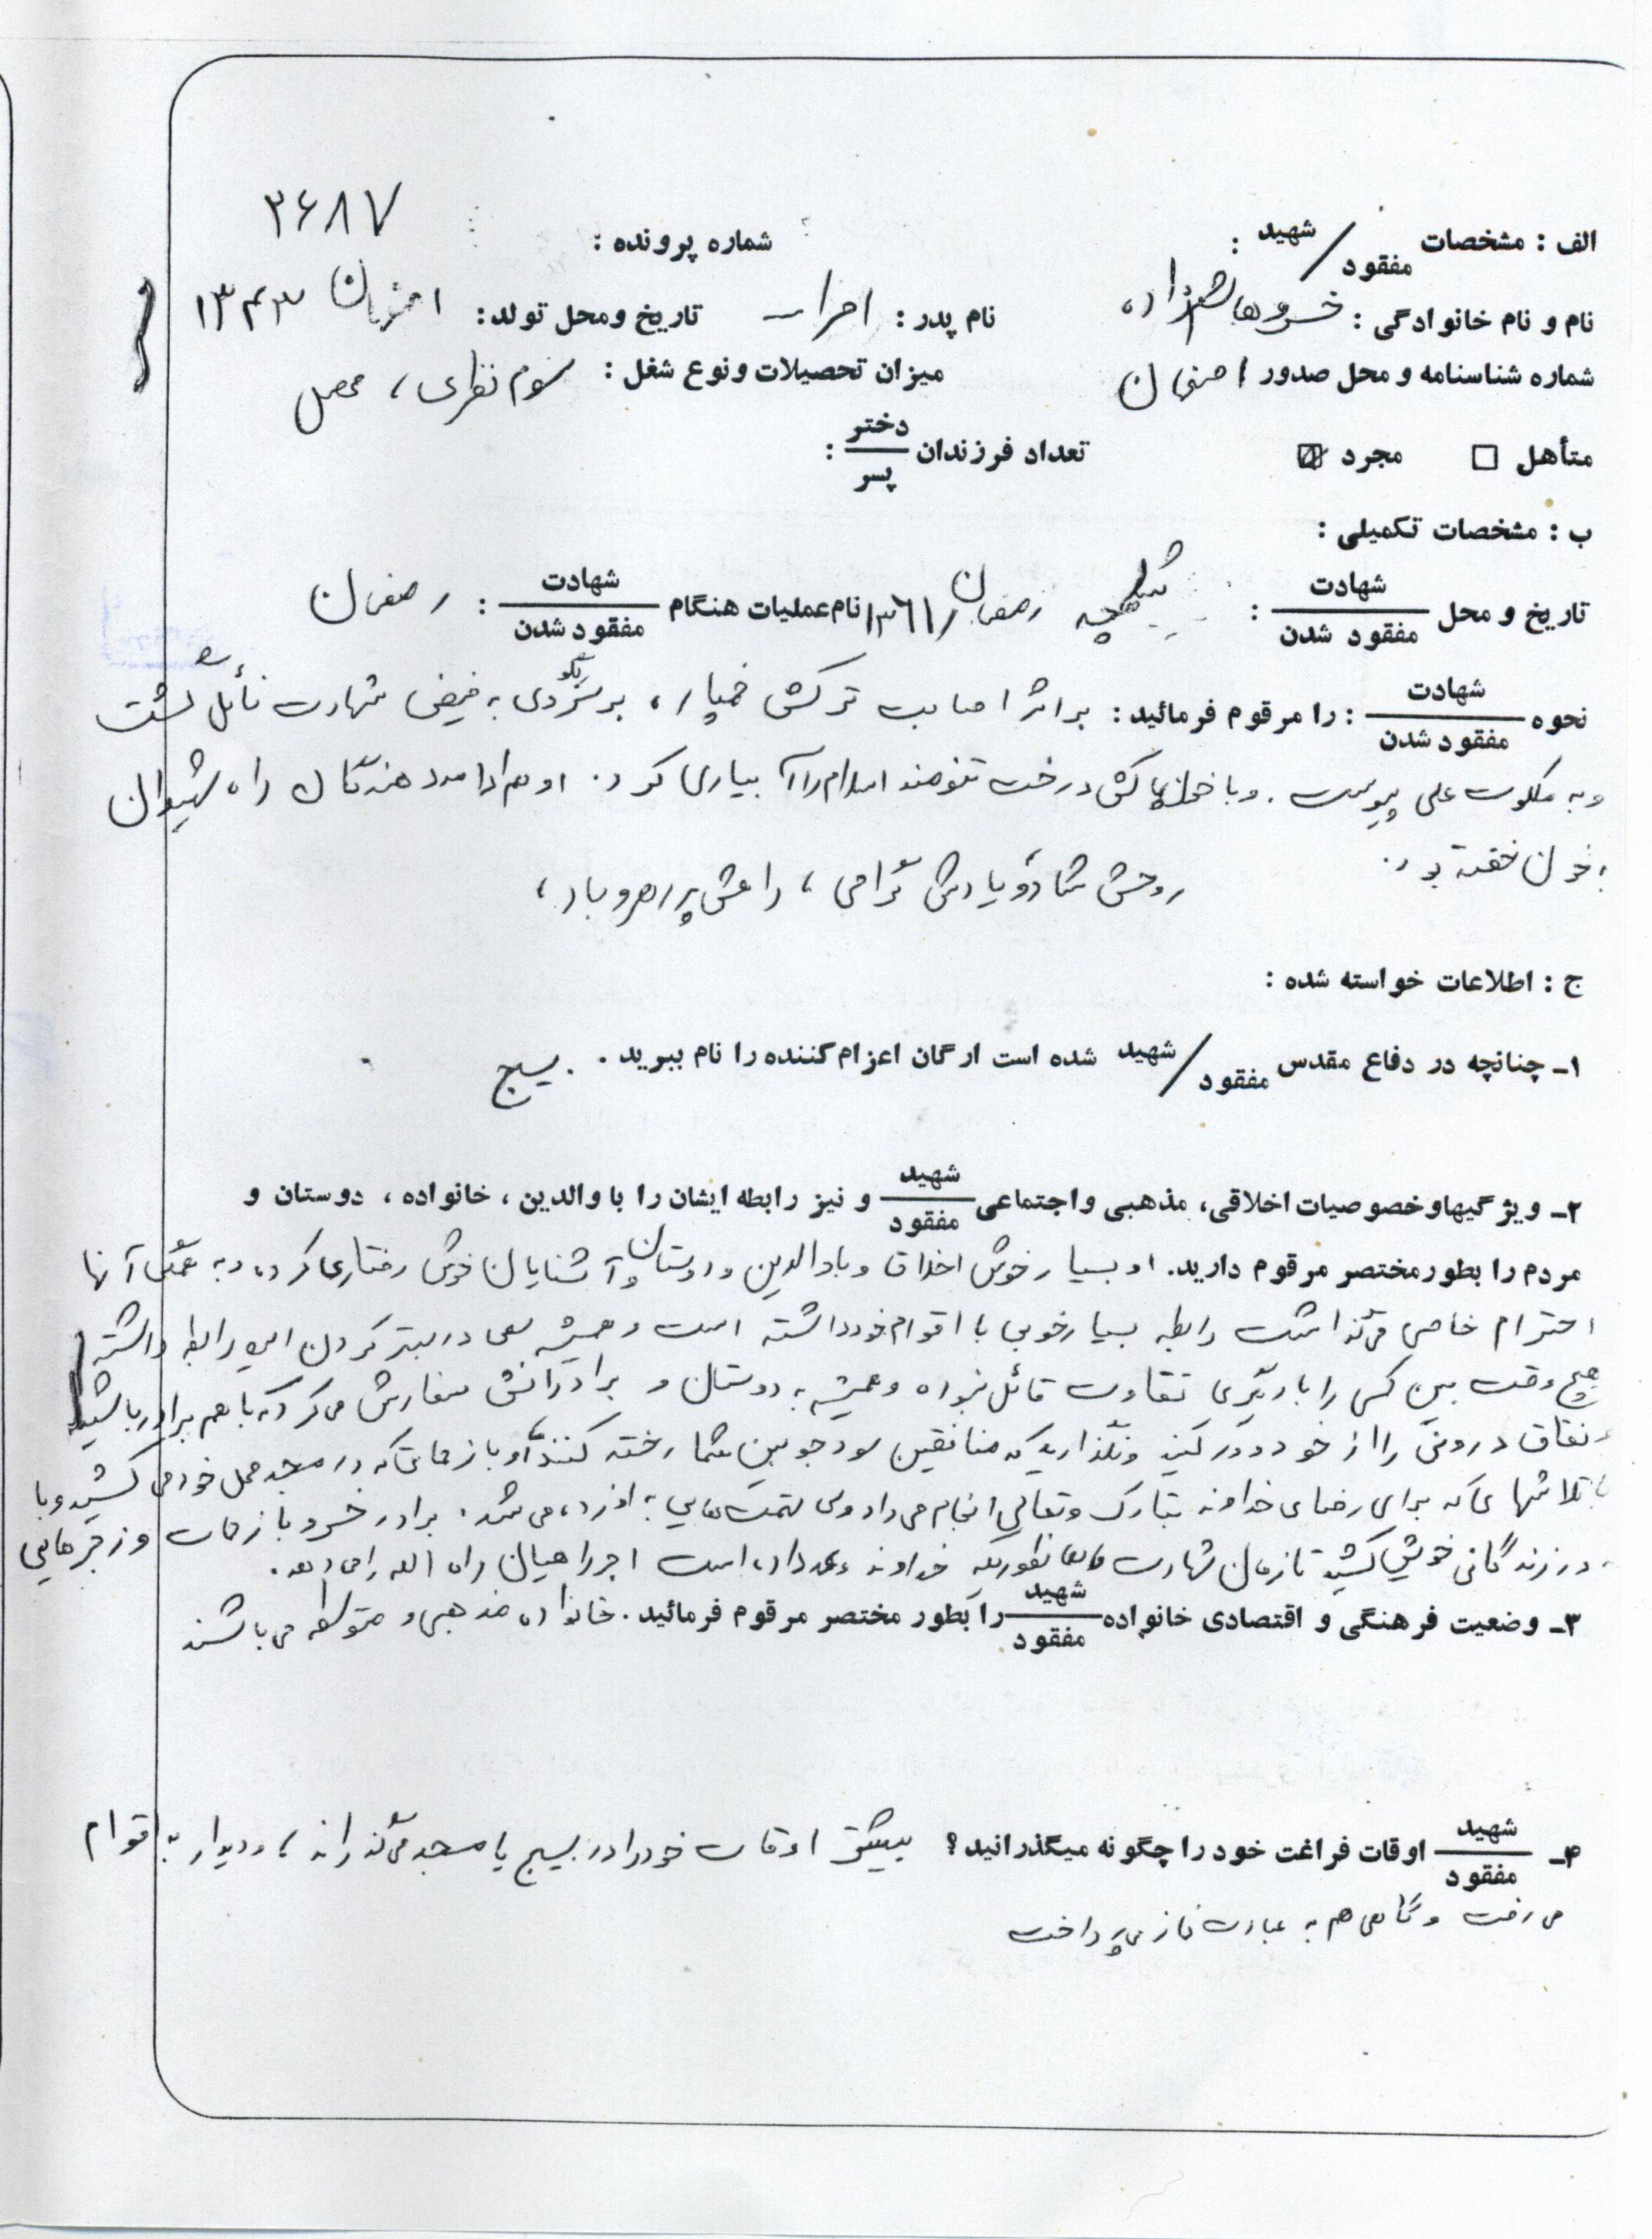 ۳۶۸۷
الف : مشخصات شهید / مفقود : شماره پرونده :
نام و نام خانوادگی : خسرو نام پدر : تاریخ ومحل تولد : اصفهان ۱۳۴۳
شماره شناسنامه و محل صدور اصفهان میزان تحصیلات ونوع شغل : سوم نظری، محصل
متأهل □ مجرد ☒ تعداد فرزندان دختر / پسر :
ب : مشخصات تکمیلی :
تاریخ و محل شهادت / مفقود شدن : رمضان ۱۳۶۱ نام عملیات هنگام شهادت / مفقود شدن : رمضان
نحوه شهادت / مفقود شدن : را مرقوم فرمائید : براثر اصابت ترکش خمپاره به فیض شهادت نائل گشت
وبه ملکوت علی پیوست . وبا خون پاکش درخت تنومند اسلام را آبیاری کرد . او هم ادامه دهندگان راه شهیدان
بخون خفته بود .
روحش شاد و یادش گرامی ، راهش پر رهرو باد ،
ج : اطلاعات خواسته شده :
۱ـ چنانچه در دفاع مقدس شهید / مفقود شده است ارگان اعزام کننده را نام ببرید . بسیج
۲ـ ویژگیها و خصوصیات اخلاقی، مذهبی و اجتماعی شهید / مفقود و نیز رابطه ایشان را با والدین ، خانواده ، دوستان و
مردم را بطور مختصر مرقوم دارید. او بسیار خوش اخلاق و با والدین و دوستان و آشنایان خوش رفتاری کرده و به همگی آنها
احترام خاصی می‌گذاشت رابطه بسیار خوبی با اقوام خود داشته است و همیشه سعی در بهتر کردن این رابطه داشته
هیچ وقت بین کسی را با دیگری تفاوت قائل نبوده و همیشه به دوستان و برادرانش سفارش می کرد که با هم برادر باشید
نفاق درونی را از خود دور کنید و نگذارید که منافقین سودجو بین شما رخنه کنند، او با زحماتی که در مسجد محل خود می کشید و با
تلاشهای که برای رضای خداوند تبارک و تعالی انجام می داد ولی تهمت هایی به او زده می شد . برادر خسرو با زحمات و زجرهایی
در زندگانی خویش کشید تا زمان شهادت خداوند وعده داده است اجر راهیان راه الله را می دهد .
۳ـ وضعیت فرهنگی و اقتصادی خانواده شهید / مفقود را بطور مختصر مرقوم فرمائید . خانواده مذهبی و متوسطه می باشند
۴ـ شهید / مفقود اوقات فراغت خود را چگونه میگذرانید ؟ بیشتر اوقات خود را در بسیج یا مسجد می گذراند ، و دیدار به اقوام
می رفت و گاهی هم به عبادت نماز می پرداخت